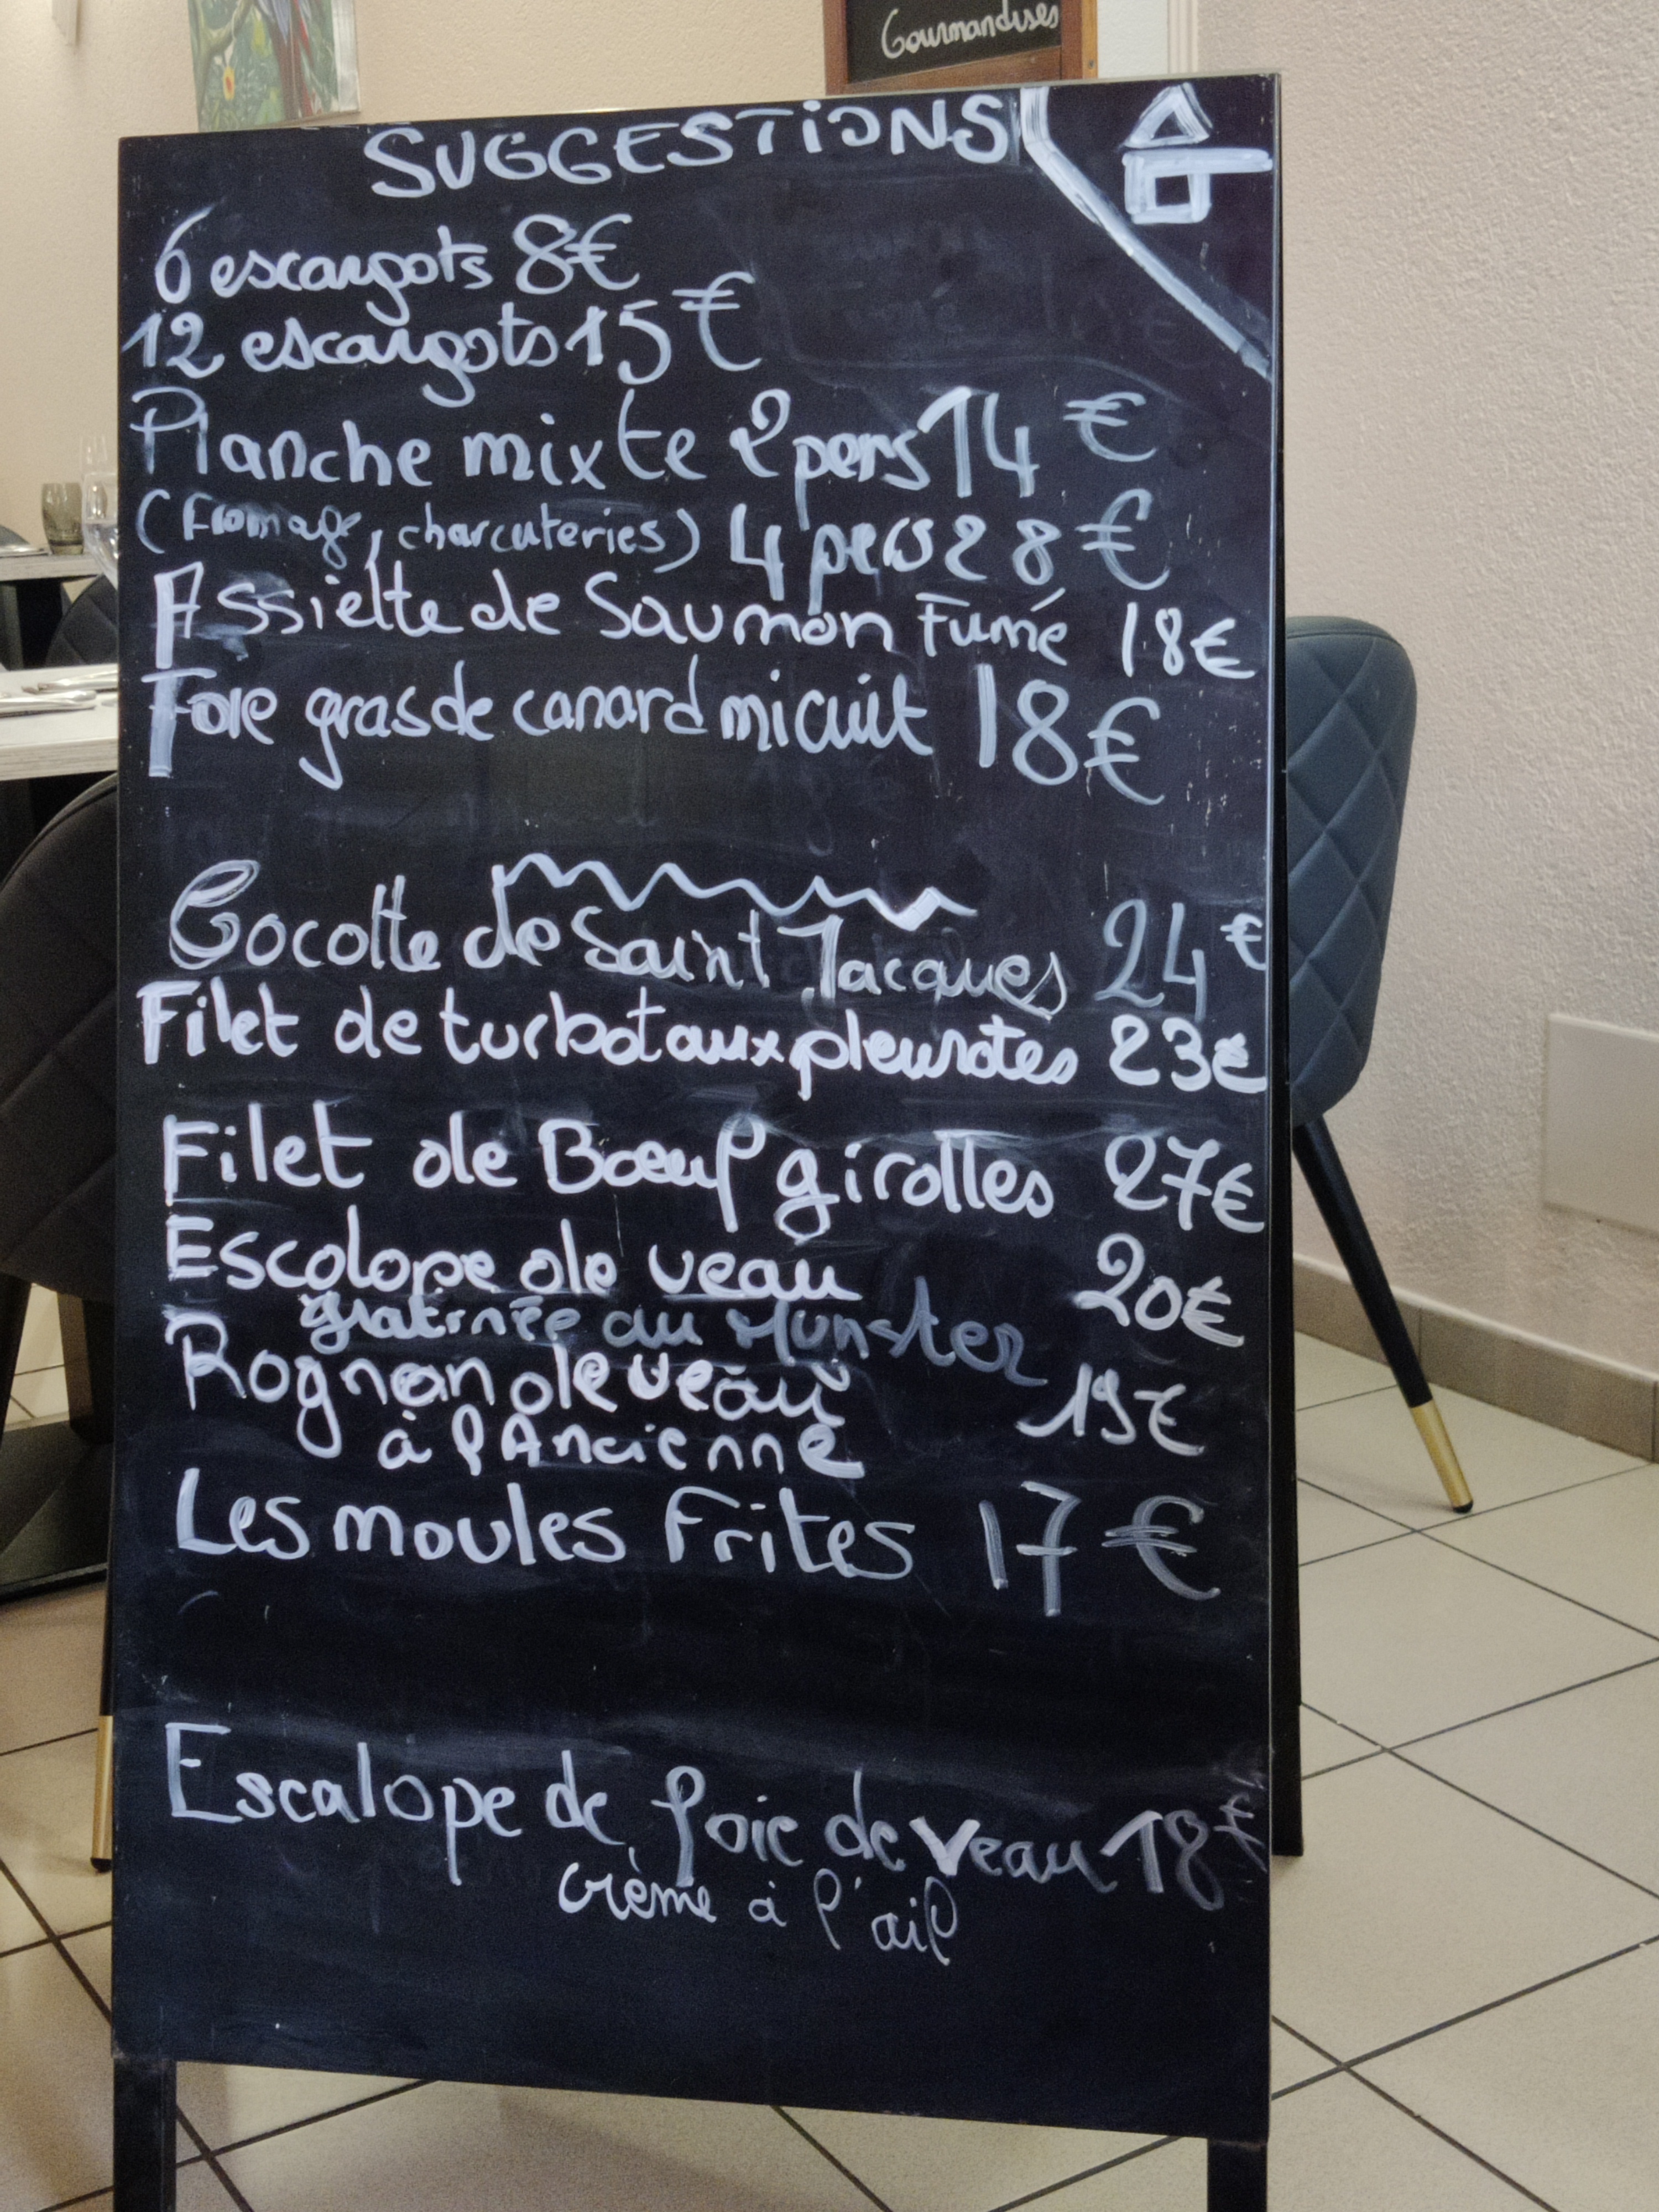 Gourmandises
SUGGESTIONS
6 escargots 8€
12 escargots 15€
Planche mixte 2 pers 14€
(fromage, charcuteries) 4 pers 28€
Assiette de Saumon Fumé 18€
Foie gras de canard micuit 18€
Cocotte de Saint Jacques 24€
Filet de turbot aux pleurotes 23€
Filet de Bœuf girolles 27€
Escalope de veau 20€
gratinée au Munster
Rognon de veau 19€
à l'Ancienne
Les moules Frites 17€
Escalope de foie de veau 18€
crème à l'ail